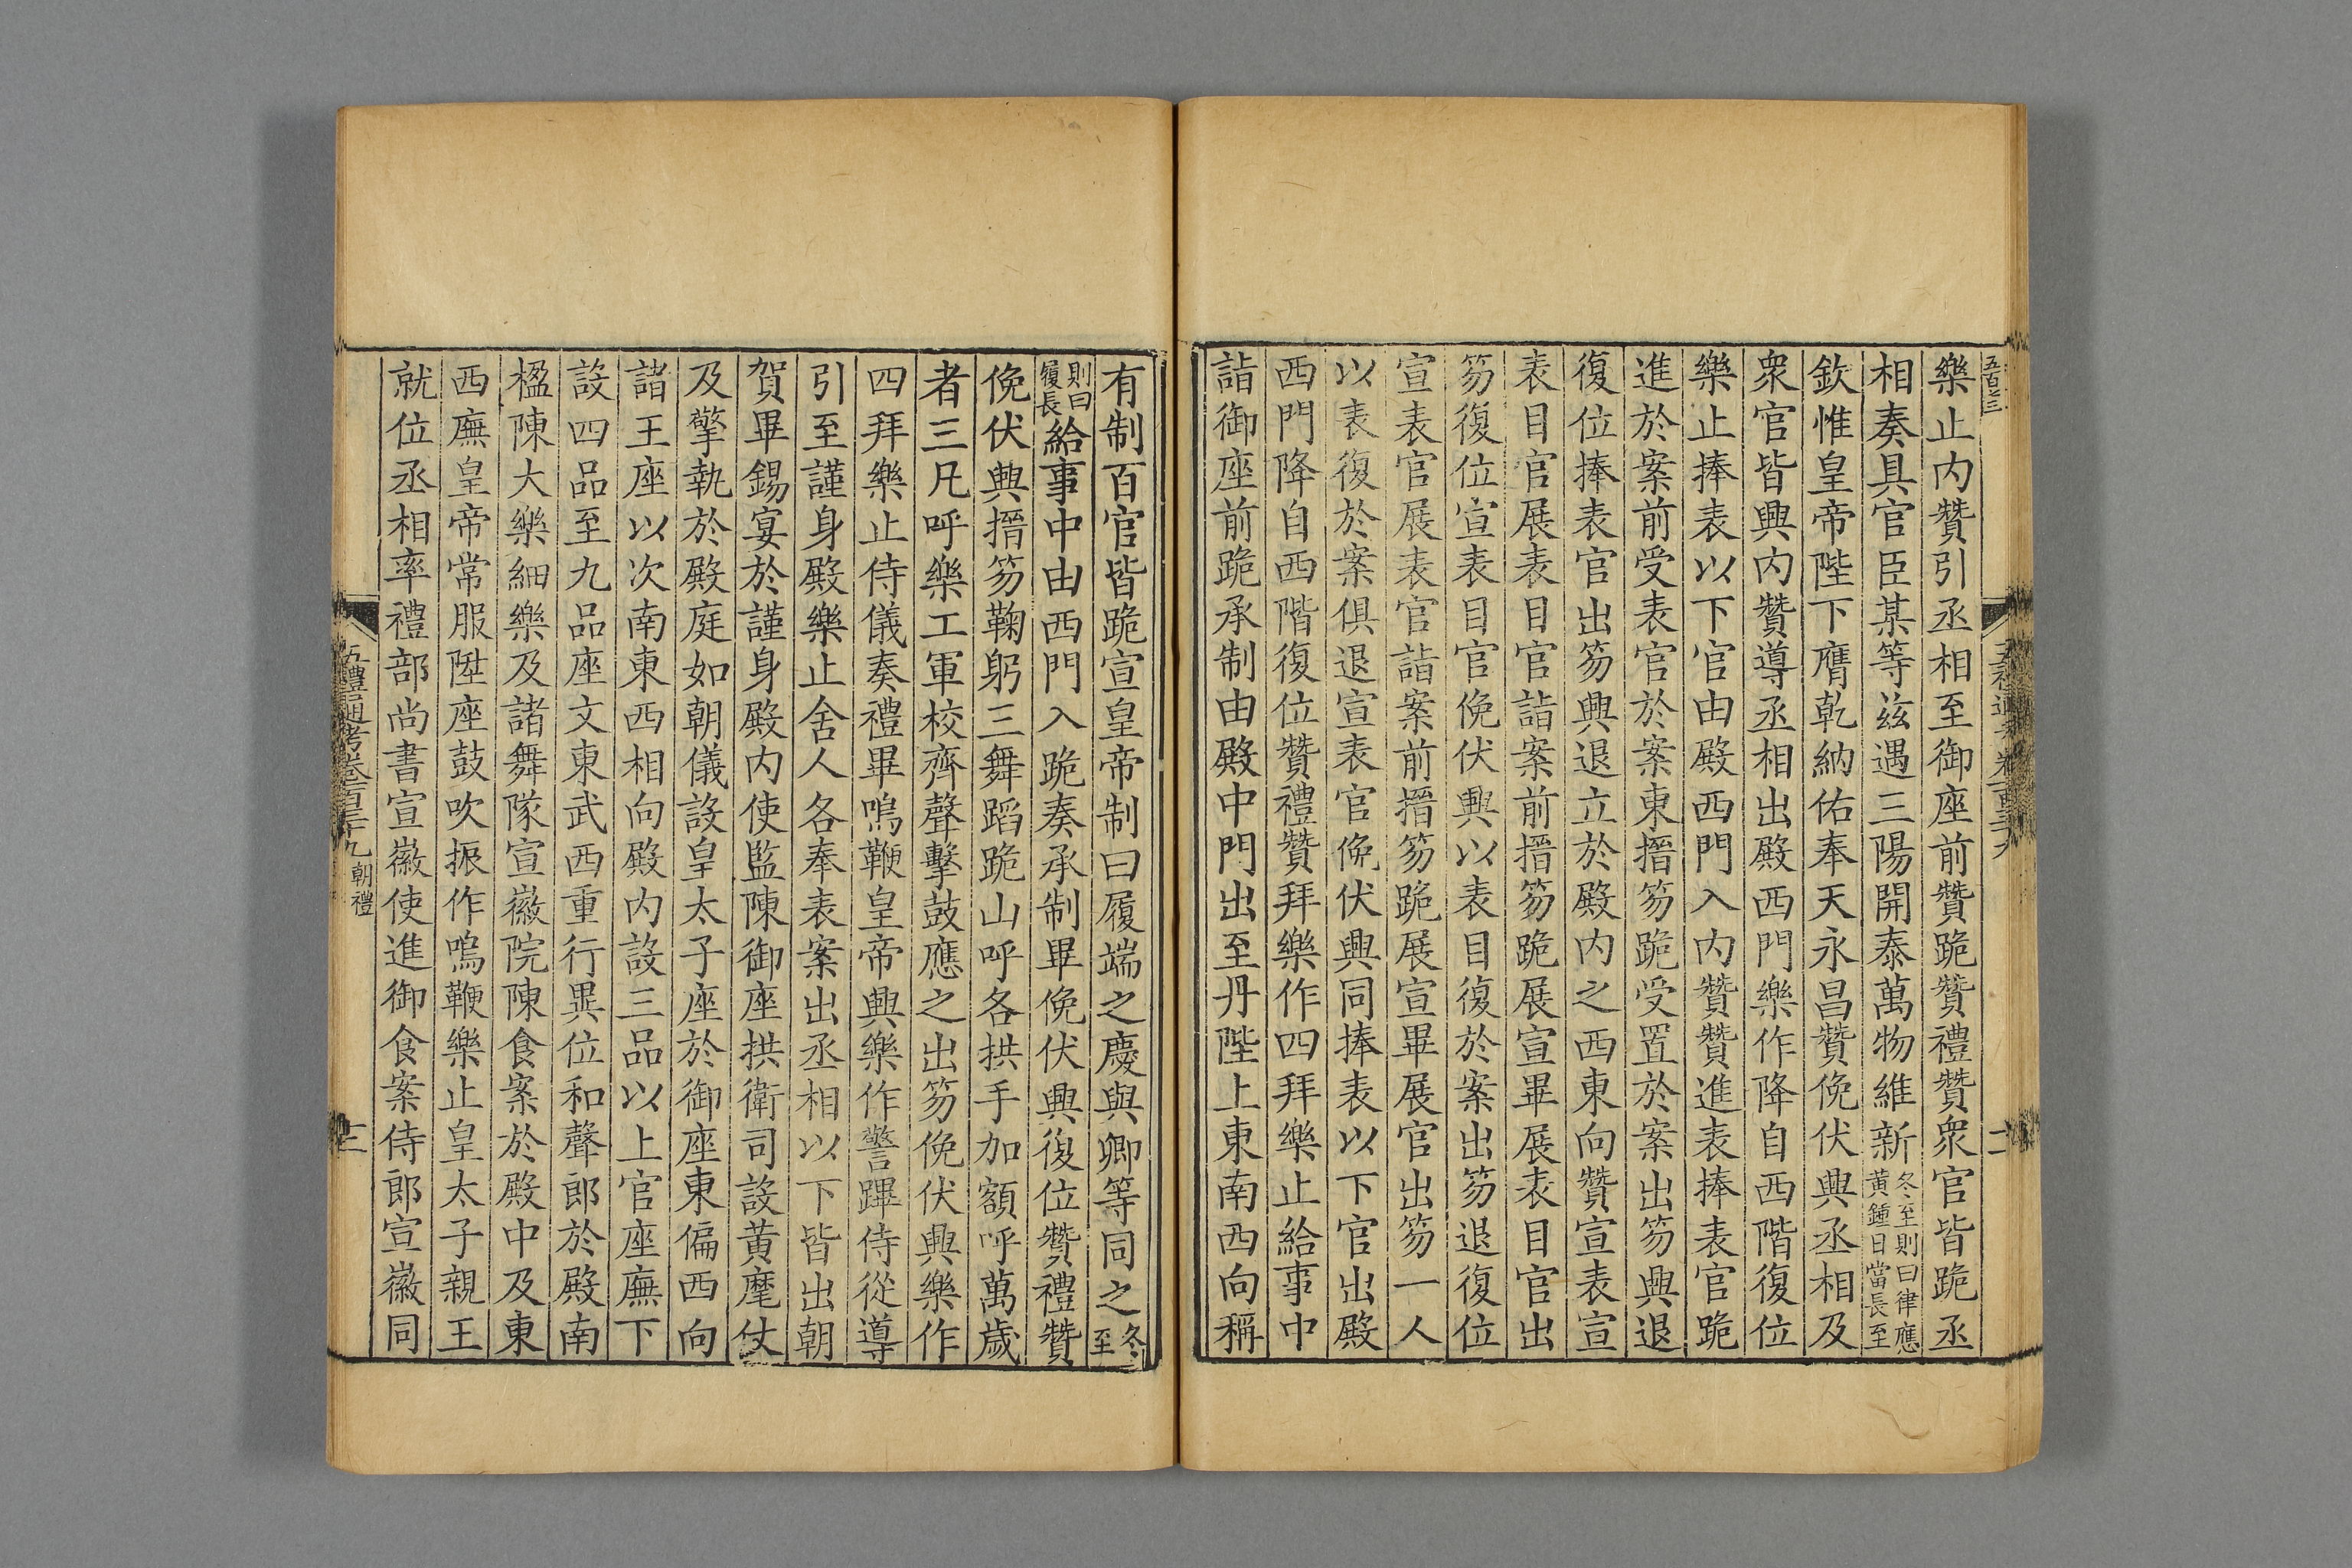 樂止内贊引丞相至御座前贊跪贊禮贊衆官皆跪丞
相奏具官臣某等兹遇三陽開泰萬物維新冬至則曰律應黄鍾日當長至
欽惟皇帝陛下膺乾納佑奉天永昌贊俛伏興丞相及
衆官皆興内贊導丞相出殿西門樂作降自西階復位
樂止捧表以下官由殿西門入内贊贊進表捧表官跪
進於案前受表官於案東搢笏跪受置於案出笏興退
復位捧表官出笏興退立於殿内之西東向贊宣表宣
表目官展表目官詣案前搢笏跪展宣畢展表目官出
笏復位宣表目官俛伏興以表目復於案出笏退復位
宣表官展表官詣案前搢笏跪展宣畢展官出笏一人
以表復於案俱退宣表官俛伏興同捧表以下官出殿
西門降自西階復位贊禮贊拜樂作四拜樂止給事中
詣御座前跪承制由殿中門出至丹陛上東南西向稱
有制百官皆跪宣皇帝制曰履端之慶與卿等同之冬至
則曰履長給事中由西門入跪奏承制畢俛伏興復位贊禮贊
俛伏興搢笏鞠躬三舞蹈跪山呼各拱手加額呼萬歲
者三凡呼樂工軍校齊聲擊鼓應之出笏俛伏興樂作
四拜樂止侍儀奏禮畢鳴鞭皇帝興樂作警蹕侍從導
引至謹身殿樂止舍人各奉表案出丞相以下皆出朝
賀畢錫宴於謹身殿内使監陳御座拱衛司設黄麾仗
及擎執於殿庭如朝儀設皇太子座於御座東偏西向
諸王座以次南東西相向殿内設三品以上官座廡下
設四品至九品座文東武西重行異位和聲郎於殿南
楹陳大樂細樂及諸舞隊宣徽院陳食案於殿中及東
西廡皇帝常服陞座鼓吹振作鳴鞭樂止皇太子親王
就位丞相率禮部尚書宣徽使進御食案侍郎宣徽同
五禮通考卷一百三十九 朝禮
三